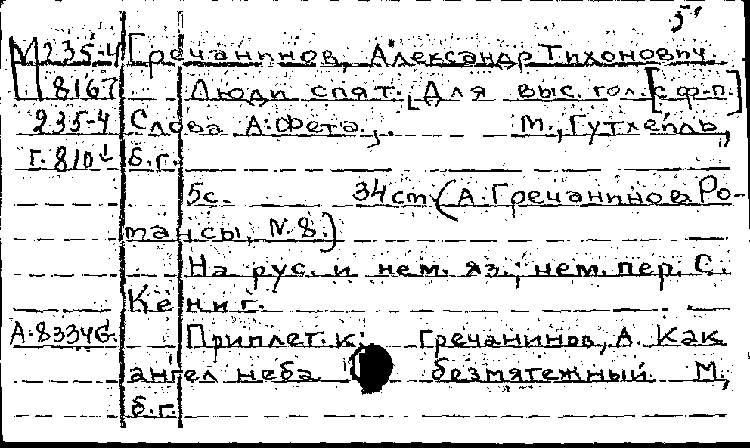 5
М 235-4 Гречанинов, Александр Тихонович.
8167 Люди спят. Для выс. гол. [с ф-п.]
235-4 Слова А. Фета. М., Гутхейль,
г. 810 б.г.
5с. 34 ст (А. Гречанинов Ро-
мансы, N. 8.)
На рус. и нем. яз.; нем. пер. С.
Кениг.
А-83346 Приплет. к: Гречанинов, А. Как
ангел неба безмятежный М,
б.г.